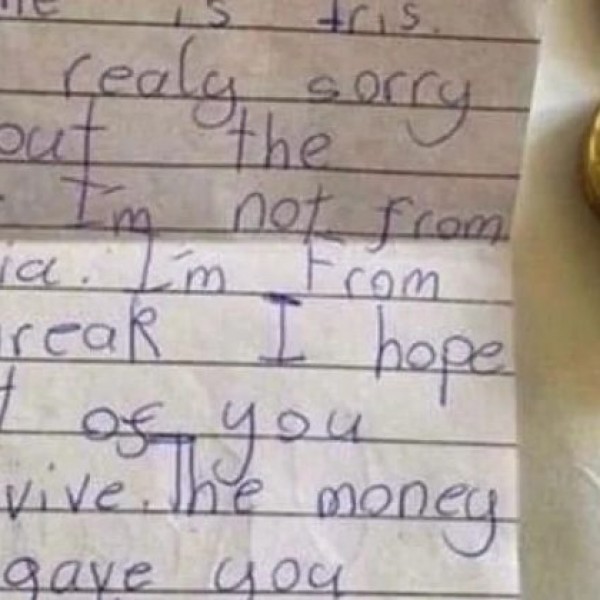 is tris.
realy sorry
out the
I'm not from
ia. I'm From
reak I hope
t of you
vive. The money
gave you